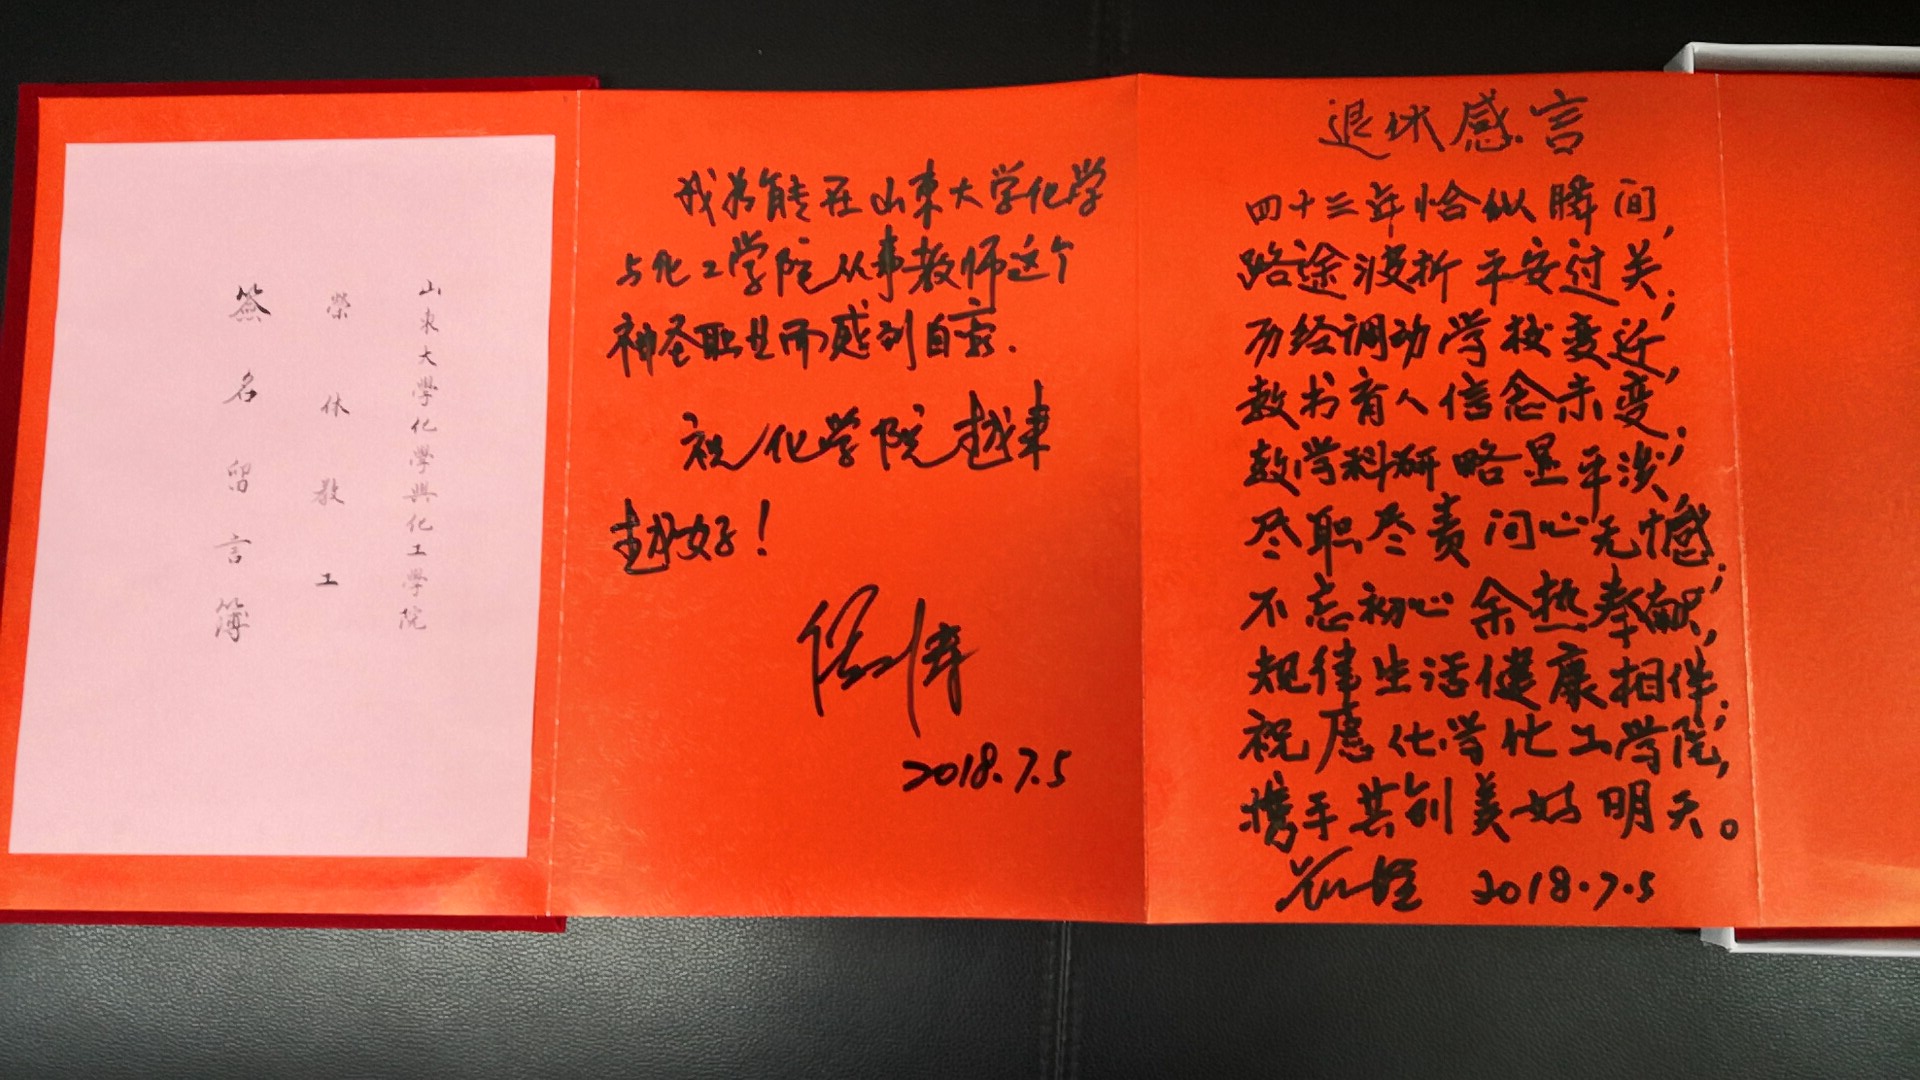 山東大學化學與化工學院
榮休教工
簽名留言簿
我为能在山东大学化学
与化工学院从事教师这个
神圣职业而感到自豪.
祝化学院越来
越好!
2018.7.5
退休感言
四十三年恰似瞬间,
路途波折平安过关;
历经调动学校变迁,
教书育人信念未变;
教学科研略显平淡,
尽职尽责问心无憾;
不忘初心余热奉献,
规律生活健康相伴;
祝愿化学化工学院,
携手共创美好明天。
2018.7.5